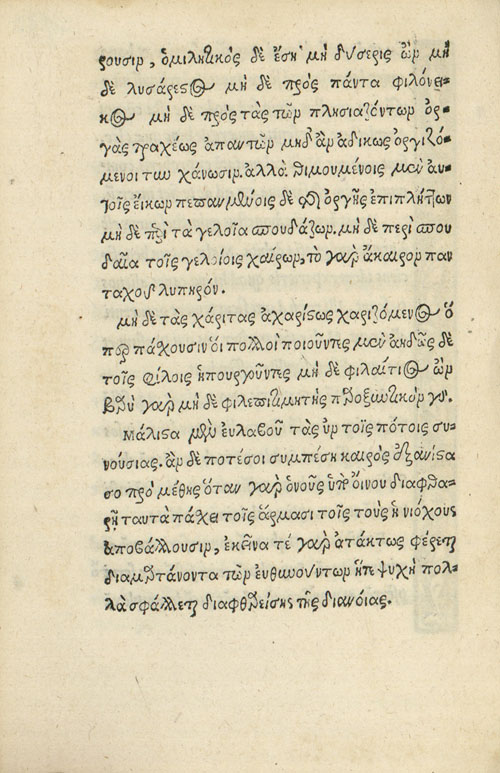 ρουσιν, ὁμιλητικὸς δὲ ἔσῃ μὴ δύσερις ὢν μη
δὲ δυσάρεστος μὴ δὲ πρὸς πάντα φιλόνει-
κος μὴ δὲ πρὸς τὰς τῶν πλησιαζόντων ὀρ-
γὰς τραχέως ἀπαντῶν μηδ ἂν ἀδίκως ὀργιζό-
μενοι τυγχάνωσιν. ἀλλὰ θυμουμένοις μὲν αυ-
τοῖς εἴκων πεπαυμένοις δὲ τῆς ὀργῆς ἐπιπλήττων
μὴ δὲ περὶ τὰ γελοῖα σπουδάζων. μὴ δὲ περὶ σπου
δαῖα τοῖς γελοίοις χαίρων, τὸ γὰρ ἄκαιρον παν
ταχοῦ λυπηρόν.
μὴ δὲ τὰς χάριτας ἀχαρίστως χαριζόμενος ὅ
περ πάσχουσιν ὁι πολλοὶ ποιοῦντες μὲν ἀηδῶς δὲ
τοῖς φίλοις ὑπουργοῦντες μὴ δὲ φιλαίτιος ὢν
βαρὺ γὰρ μὴ δὲ φιλεπιτιμητὴς παροξυντικὸν γάρ.
Μάλιστα μὲν ευλαβοῦ τὰς ἐν τοῖς πότοις συ-
νουσίας. ἂν δὲ ποτέ σοι συμπέσῃ καιρὸς ἐξανίστα
σο πρὸ μέθης ὅταν γὰρ ὁ νοῦς ὑπ οἴνου διαφθα-
ρῇ ταυτὰ πάσχει τοῖς ἅρμασι τοῖς τοὺς ἡνιόχους
ἀποβάλλουσιν, ἐκεῖνα τέ γὰρ ἀτάκτως φέρεται
διαμαρτάνοντα τῶν ευθυνούντων ἥτε ψυχὴ πολ-
λὰ σφάλλεται διαφθαρείσης τῆς διανοίας.